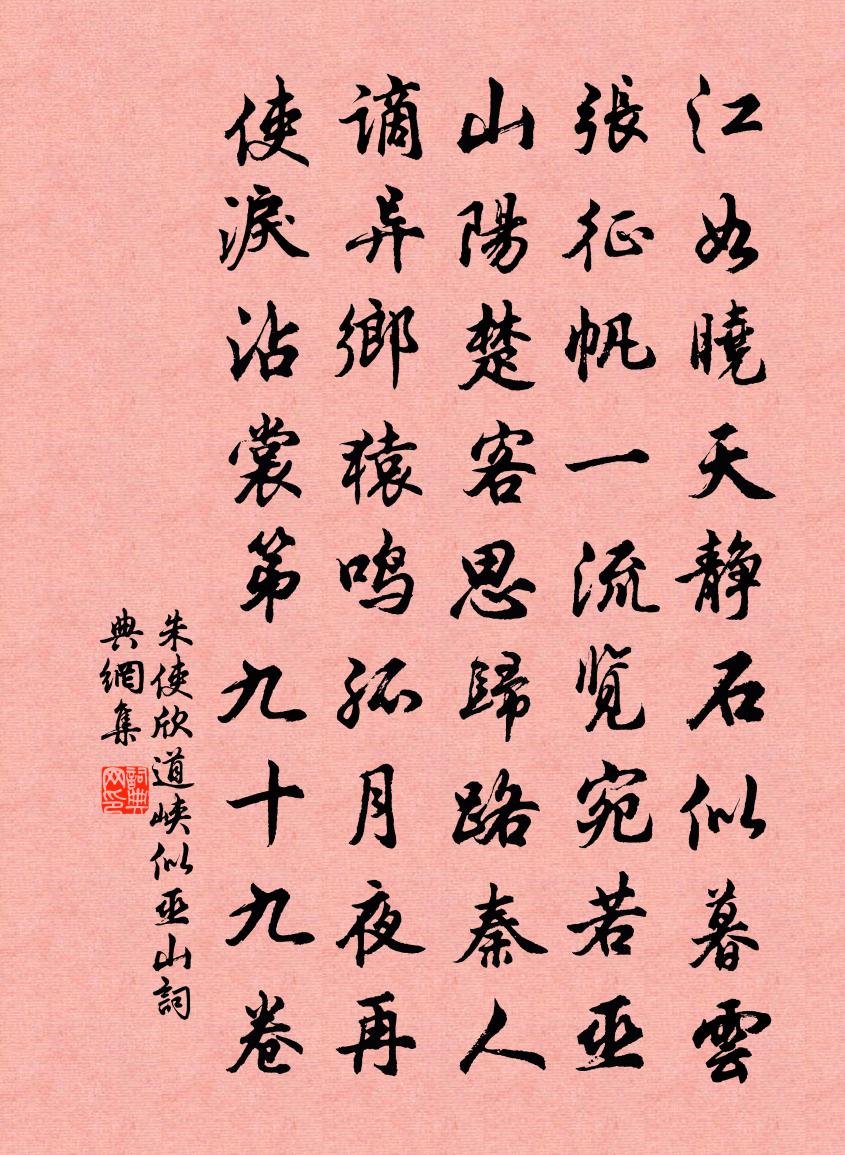 江如曉天静石似暮雲
張征帆一流览宛若巫
山陽楚客思歸路秦人
謫异鄉猿鳴孤月夜再
使淚沾裳第九十九卷
朱使欣道峡似巫山詞
典網集
詞典网印